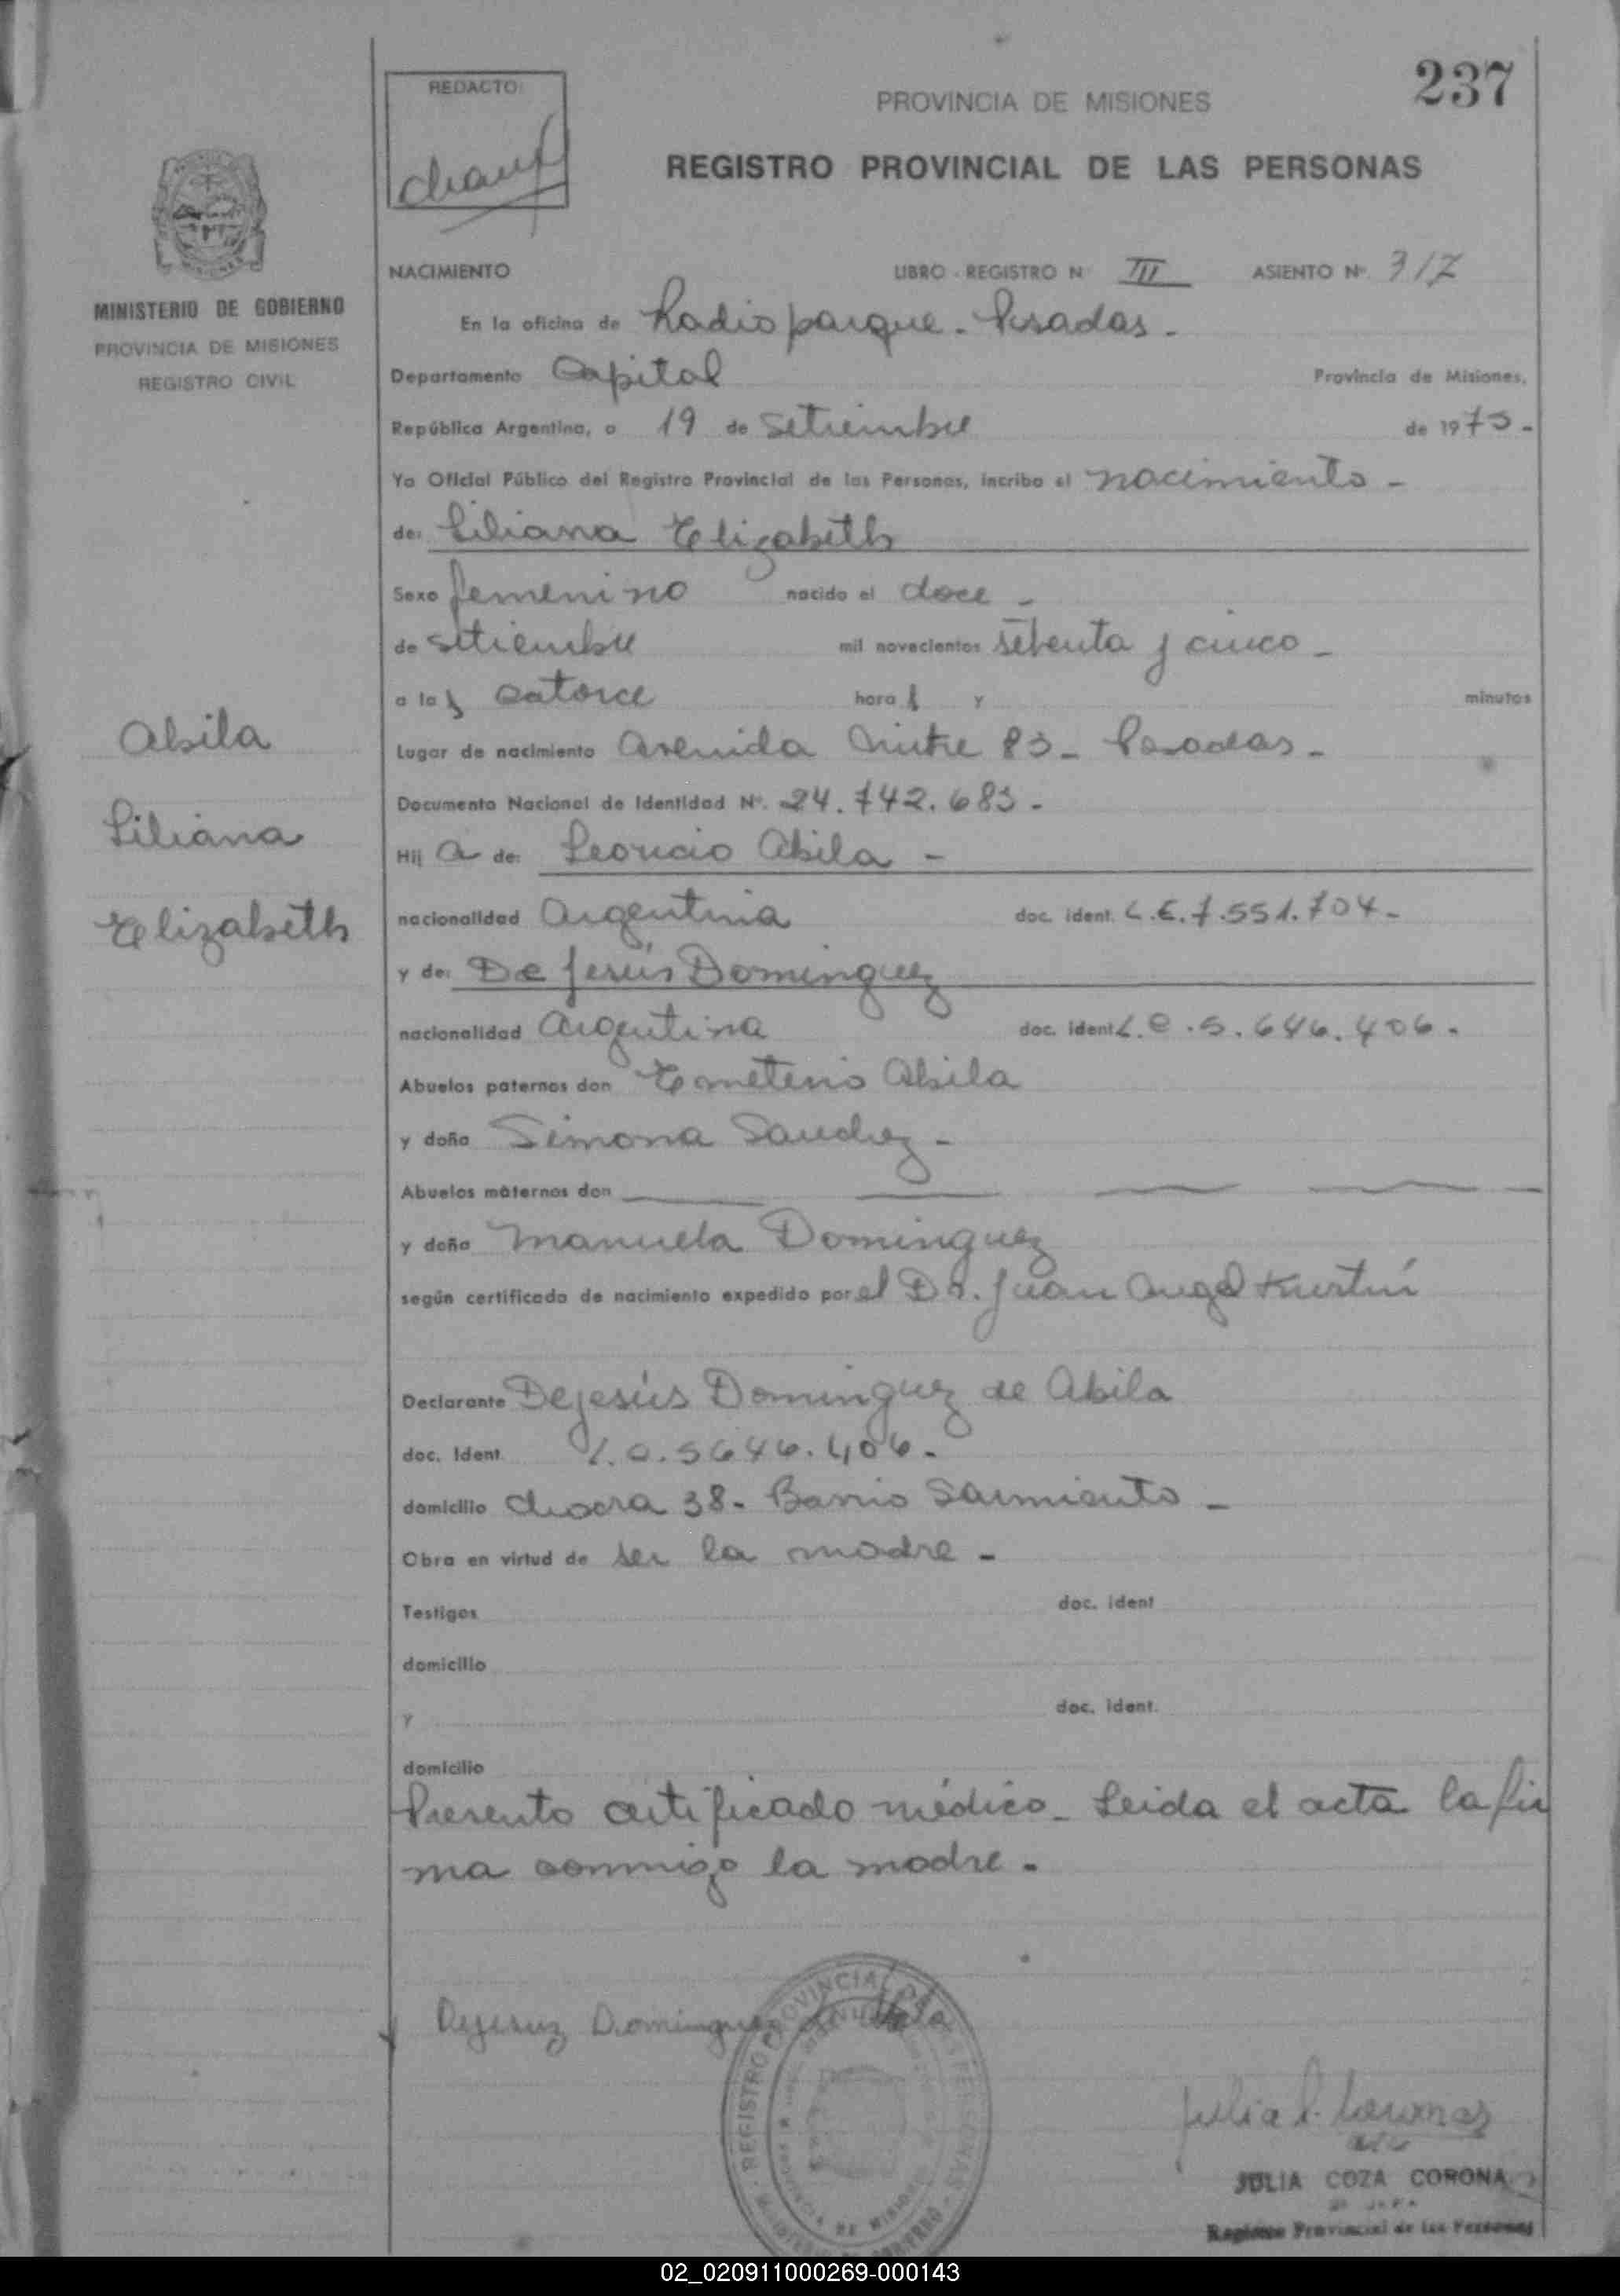 237
REDACTO:
PROVINCIA DE MISIONES
REGISTRO PROVINCIAL DE LAS PERSONAS
MINISTERIO DE GOBIERNO
PROVINCIA DE MISIONES
REGISTRO CIVIL
NACIMIENTO LIBRO - REGISTRO N III ASIENTO Nº 317
En la oficina de Radioparque - Posadas -
Departamento Capital Provincia de Misiones,
República Argentina, a 19 de Setiembre de 1975 -
Yo Oficial Público del Registro Provincial de las Personas, incribo el nacimiento -
de: Liliana Elizabeth
Sexo femenino nacido el doce -
de setiembre mil novecientos setenta y cinco -
a las catorce horas y minutos
Abila
Liliana
Elizabeth
Lugar de nacimiento Avenida Mitre 83 - Posadas -
Documento Nacional de Identidad Nº. 24.742.683 -
Hij a de: Leoncio Abila -
nacionalidad Argentina doc. ident. L.E. 7.551.704 -
y de: De Jesús Dominguez
nacionalidad Argentina doc. ident. L.C. 5.646.406 -
Abuelos paternos don Emeterio Abila
y doña Simona Sanchez -
Abuelos maternos don
y doña Manuela Dominguez
según certificado de nacimiento expedido por el Dr. Juan Angel
Declarante Dejesús Dominguez de Abila
doc. Ident. L.C. 5646.406 -
domicilio Chacra 38 - Barrio Sarmiento -
Obra en virtud de ser la madre -
Testigos doc. ident
domicilio
y doc. ident.
domicilio
Presento certificado médico - Leida el acta la fir
ma conmigo la madre -
Dejesuz Dominguez de Abila
REGISTRO PROVINCIAL DE LAS PERSONAS
JULIA COZA CORONA
Registro Provincial de las Personas
02_020911000269-000143